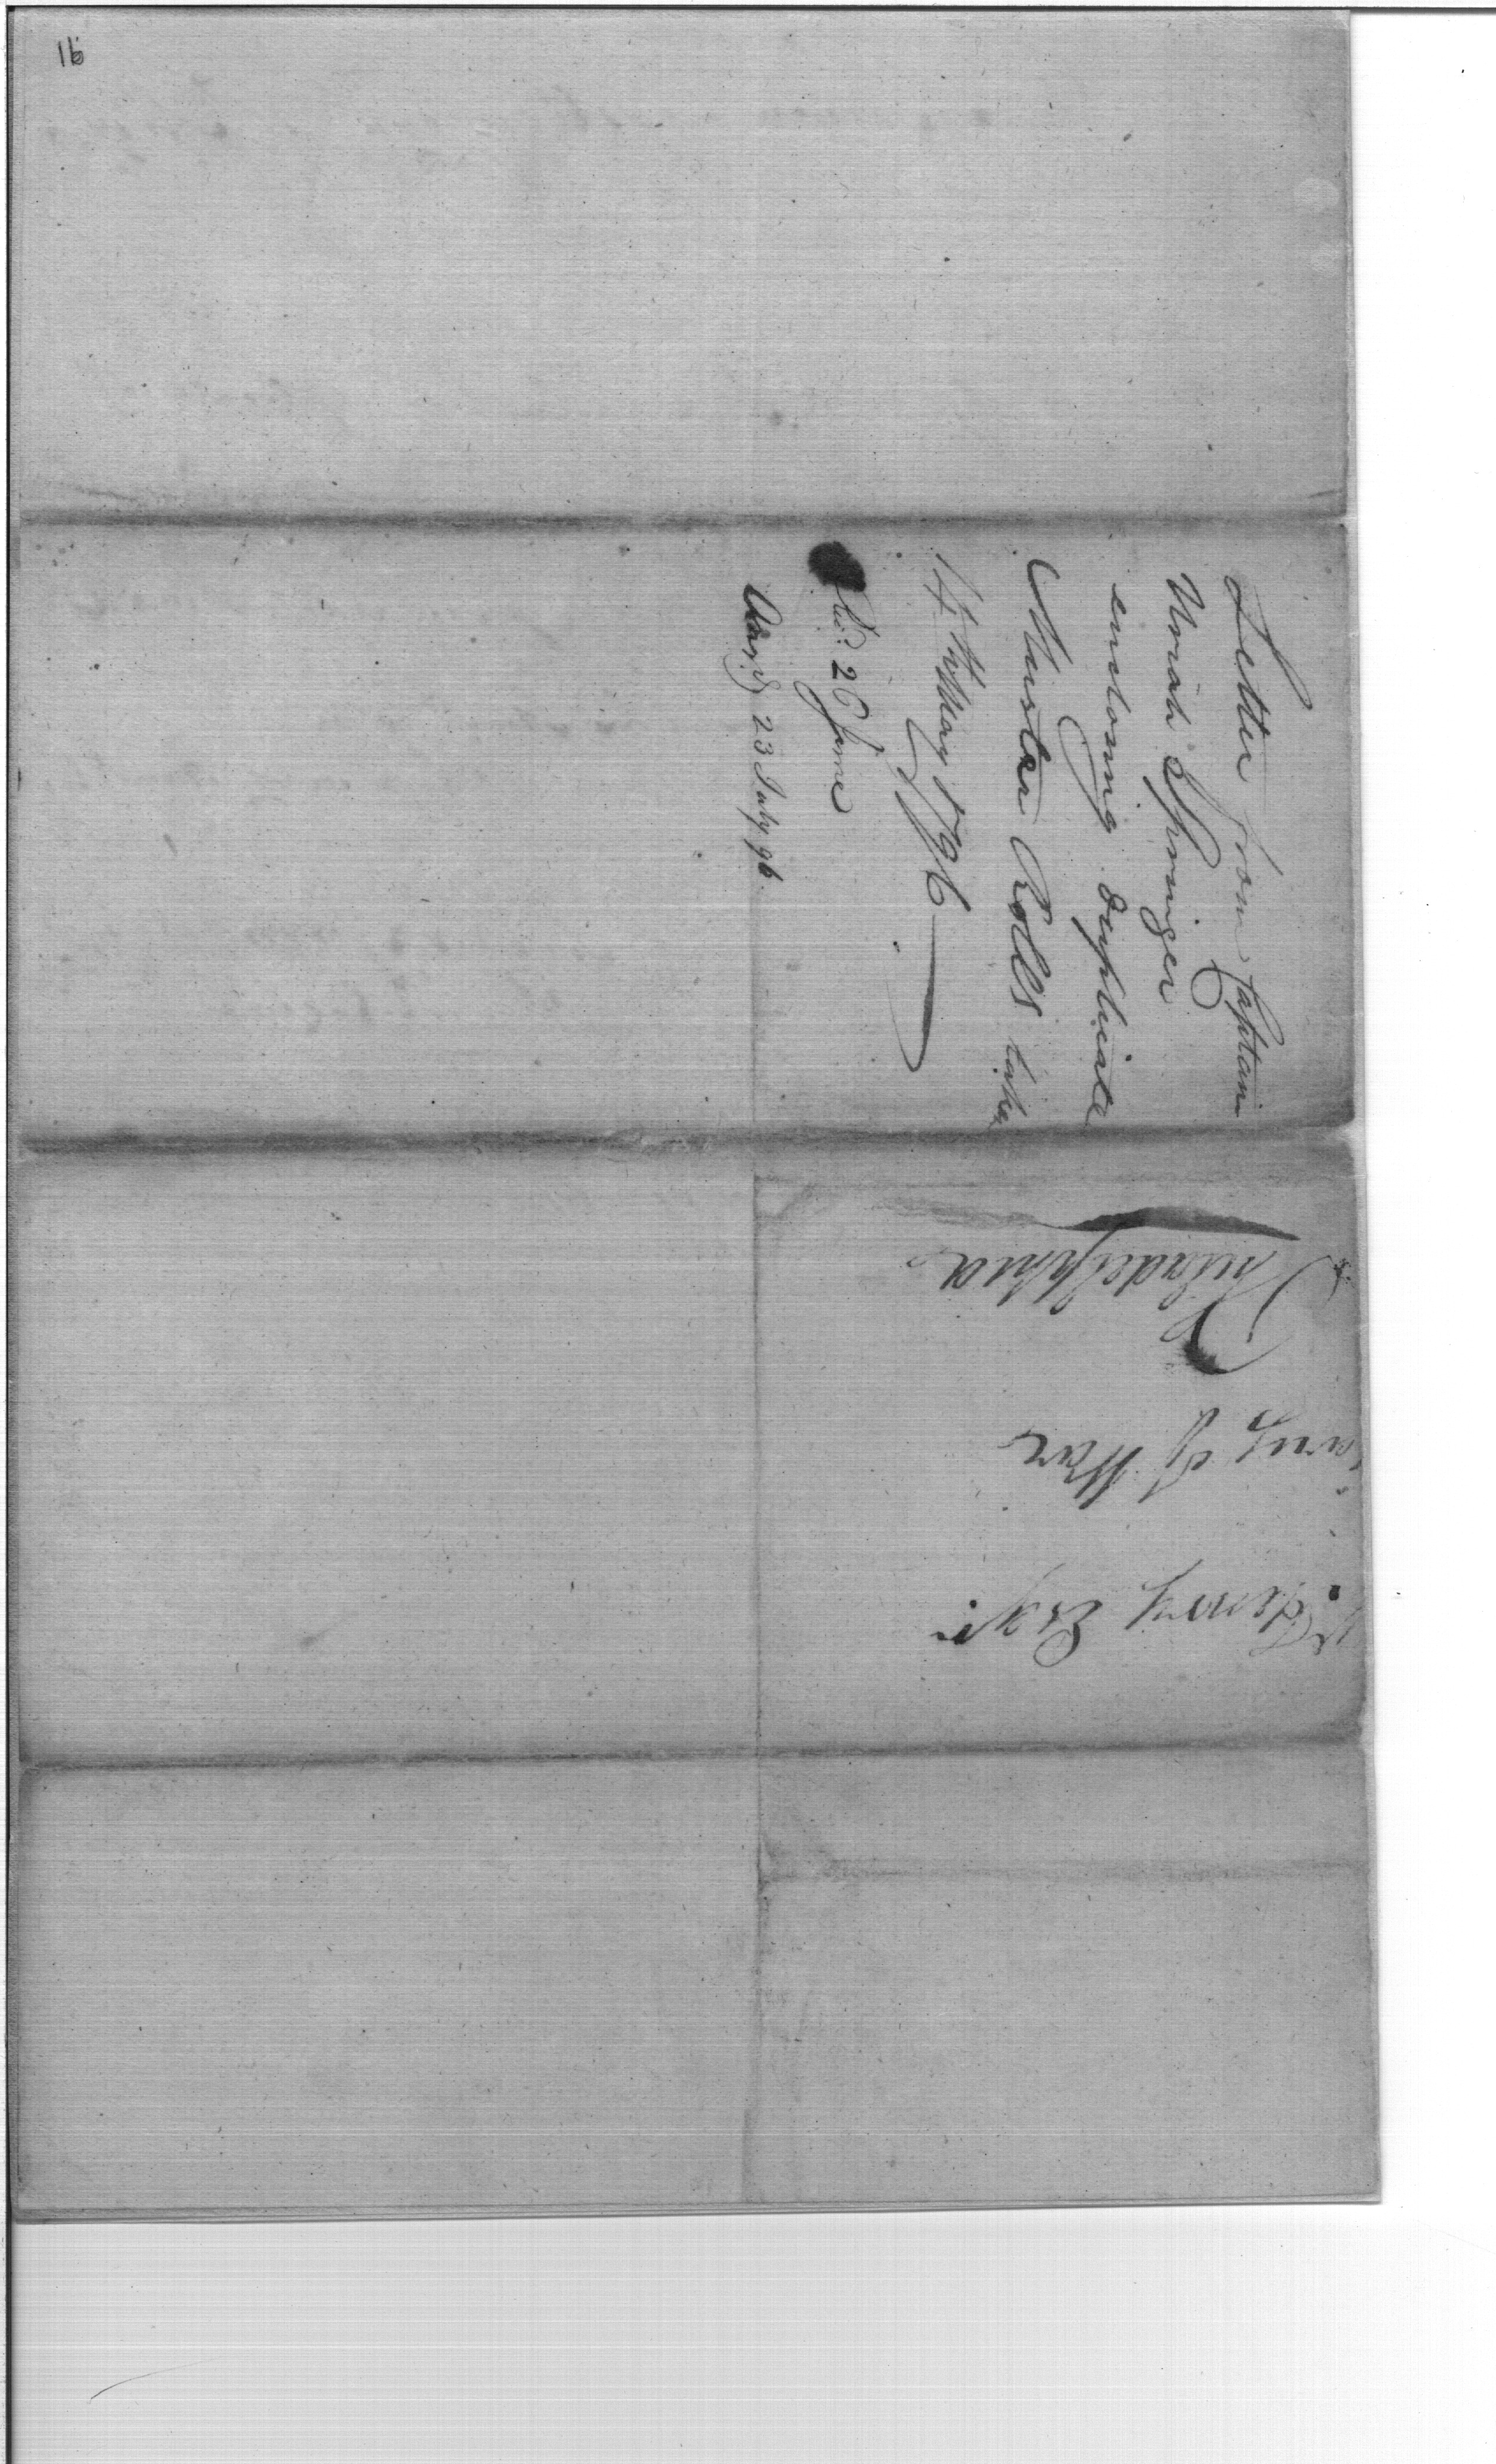 16
Letter from Captain
Uriah Springer
enclosing duplicate
Muster Rolls taken
14th May 1796
Rec.d 26 June
Ans.d 23 July 96.
Henry Esqr.
of War
Philadelphia